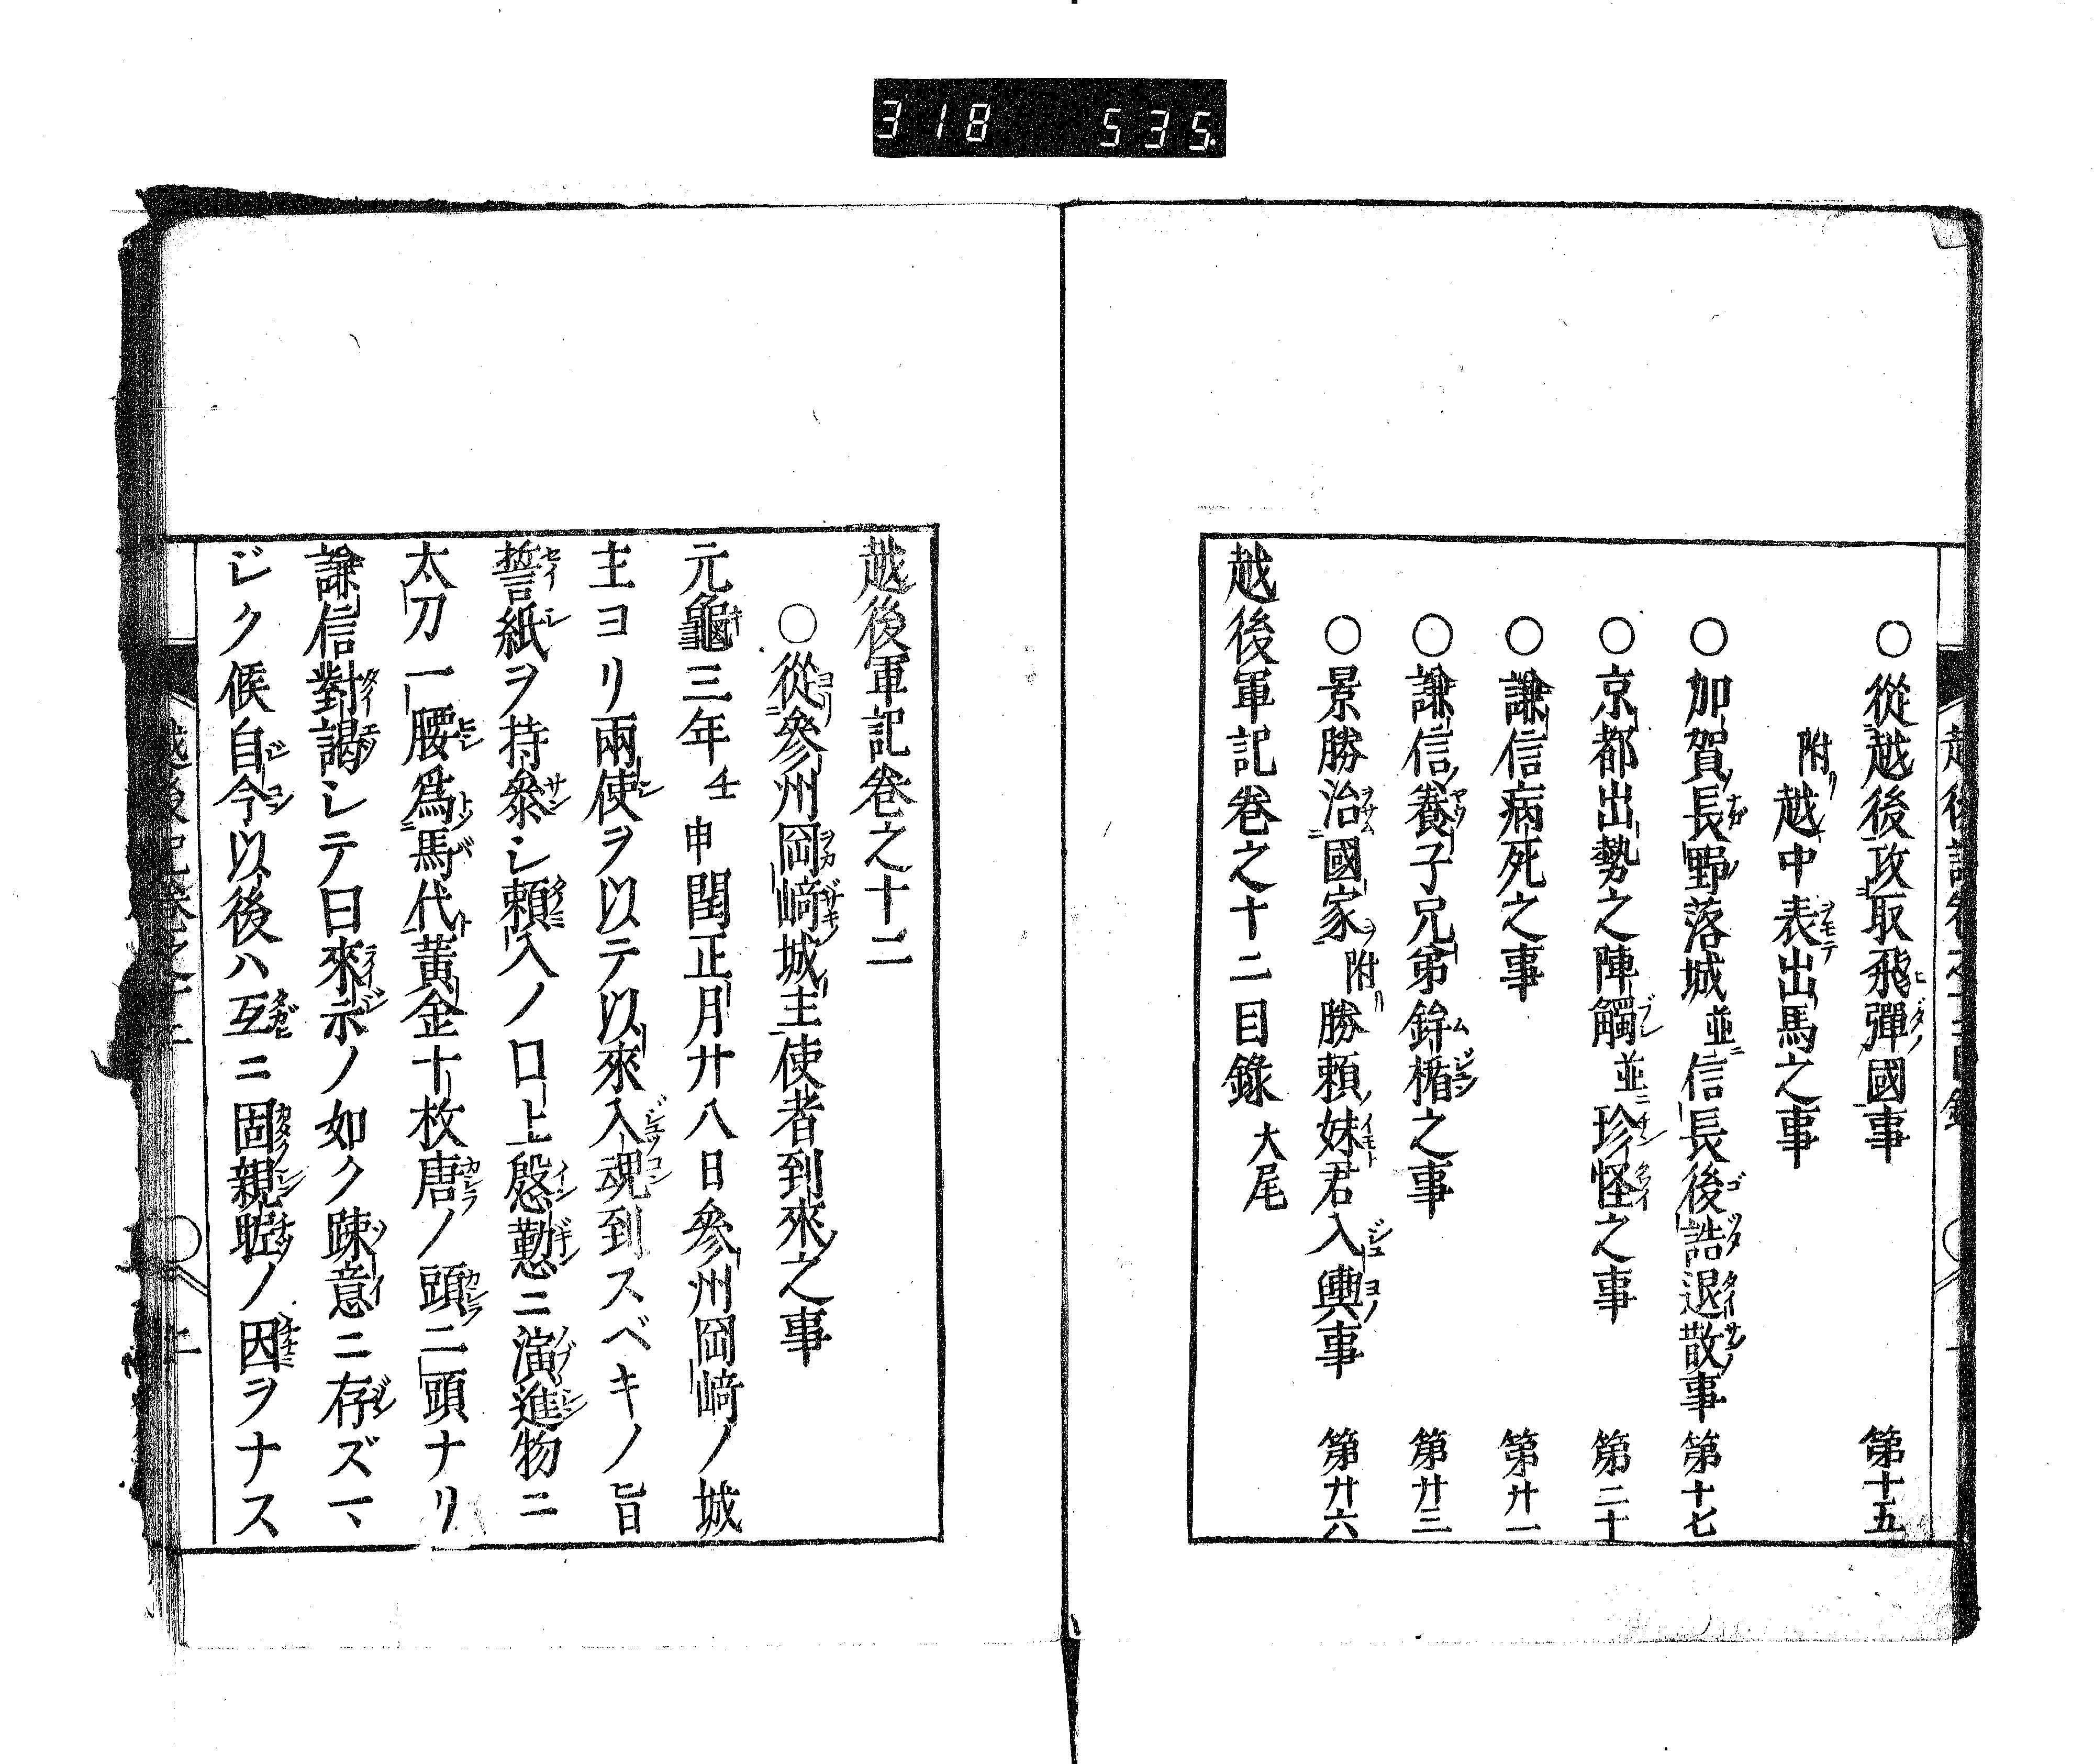 318 535
○從越後攻取飛彈國事 第十五
附リ越中表出馬之事
○加賀ノ長野落城並ニ信長後詰退散ノ事 第十七
○京都出勢之陣觸並ニ珍怪之事 第二十
○謙信病死之事 第廿一
○謙信ノ養子兄弟鉾楯之事 第廿三
○景勝治國家ヲ附リ勝頼ノ妹君入輿ノ事 第廿六
越後軍記卷之十二目錄 大尾
越後軍記卷之十二
○從參州岡﨑城主使者到來ノ之事
元龜三年壬申閏正月廿八日參州岡﨑ノ城
主ヨリ兩使ヲ以テ以來入魂到スベキノ旨
誓紙ヲ持參シ頼入ノ口上慇懃ニ演進物ニ
太刀一腰爲馬代黃金十枚唐ノ頭二頭ナリ
謙信對謁シテ曰來示ノ如ク踈意ニ存ズマ
ジク候自今以後ハ互ニ固親昵ノ因ヲナス